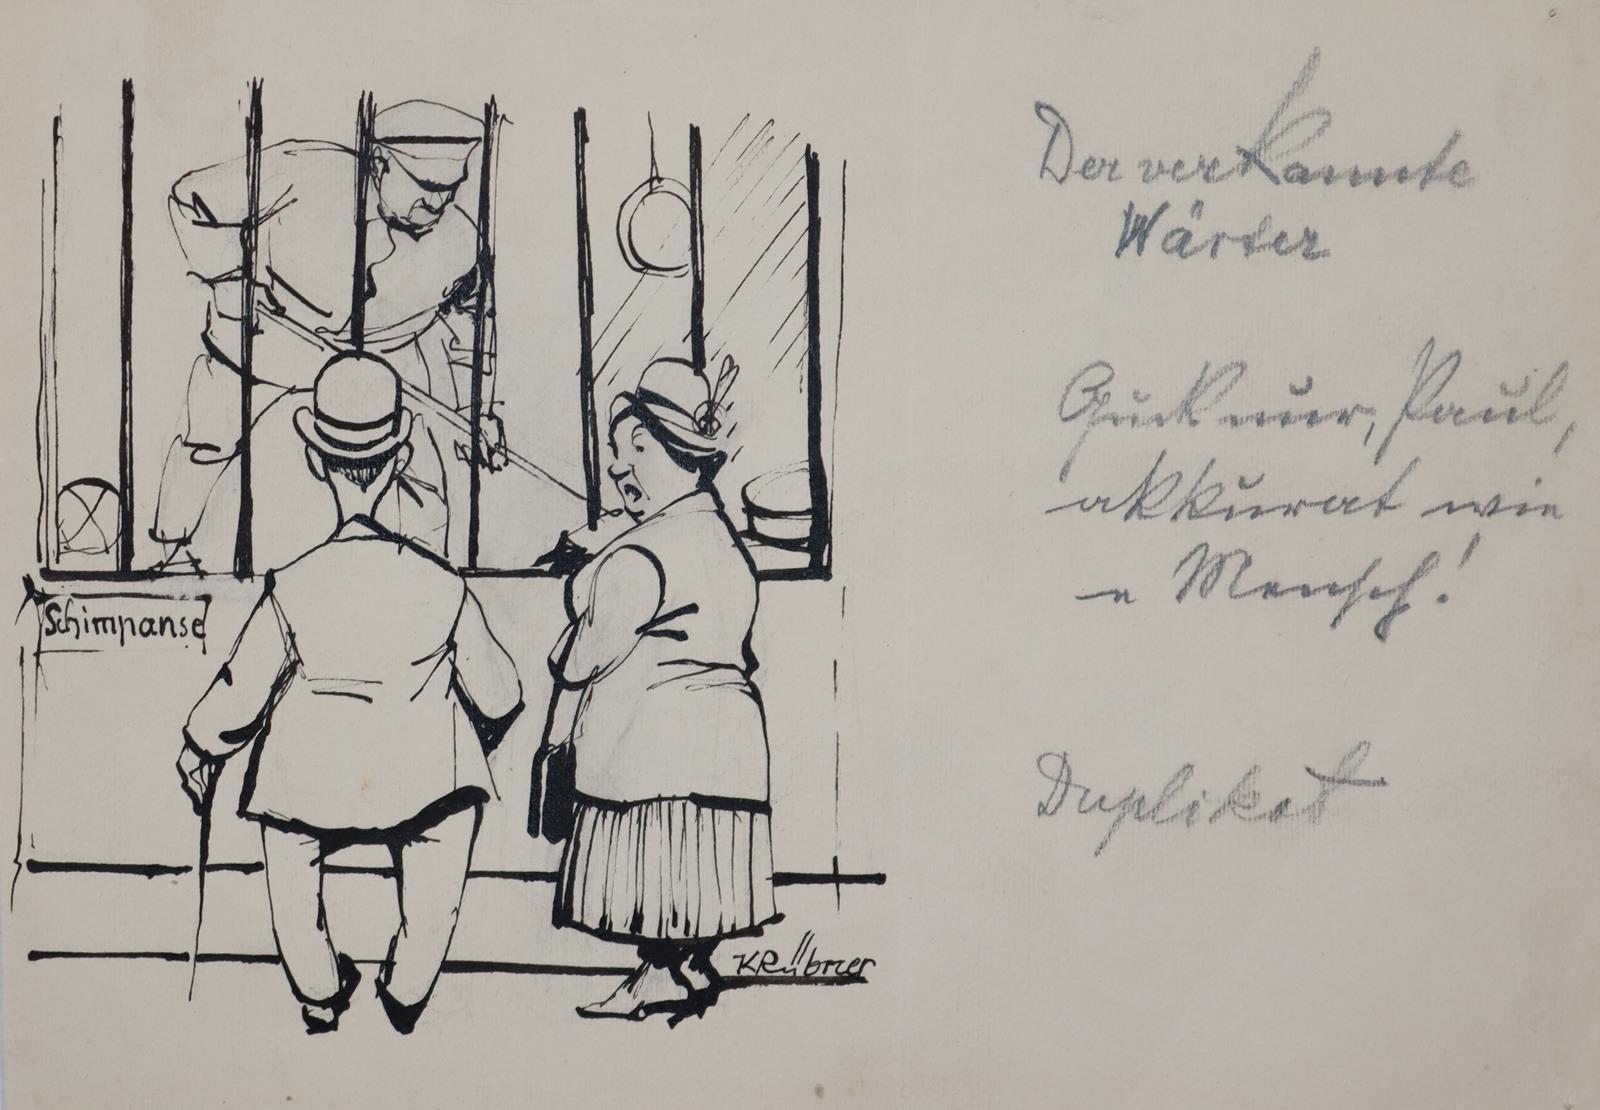 Der verkannte
Wärter
Guck nur, Paul,
akkurat wie
n Mensch!
Duplikat
Schimpanse
K Rübner